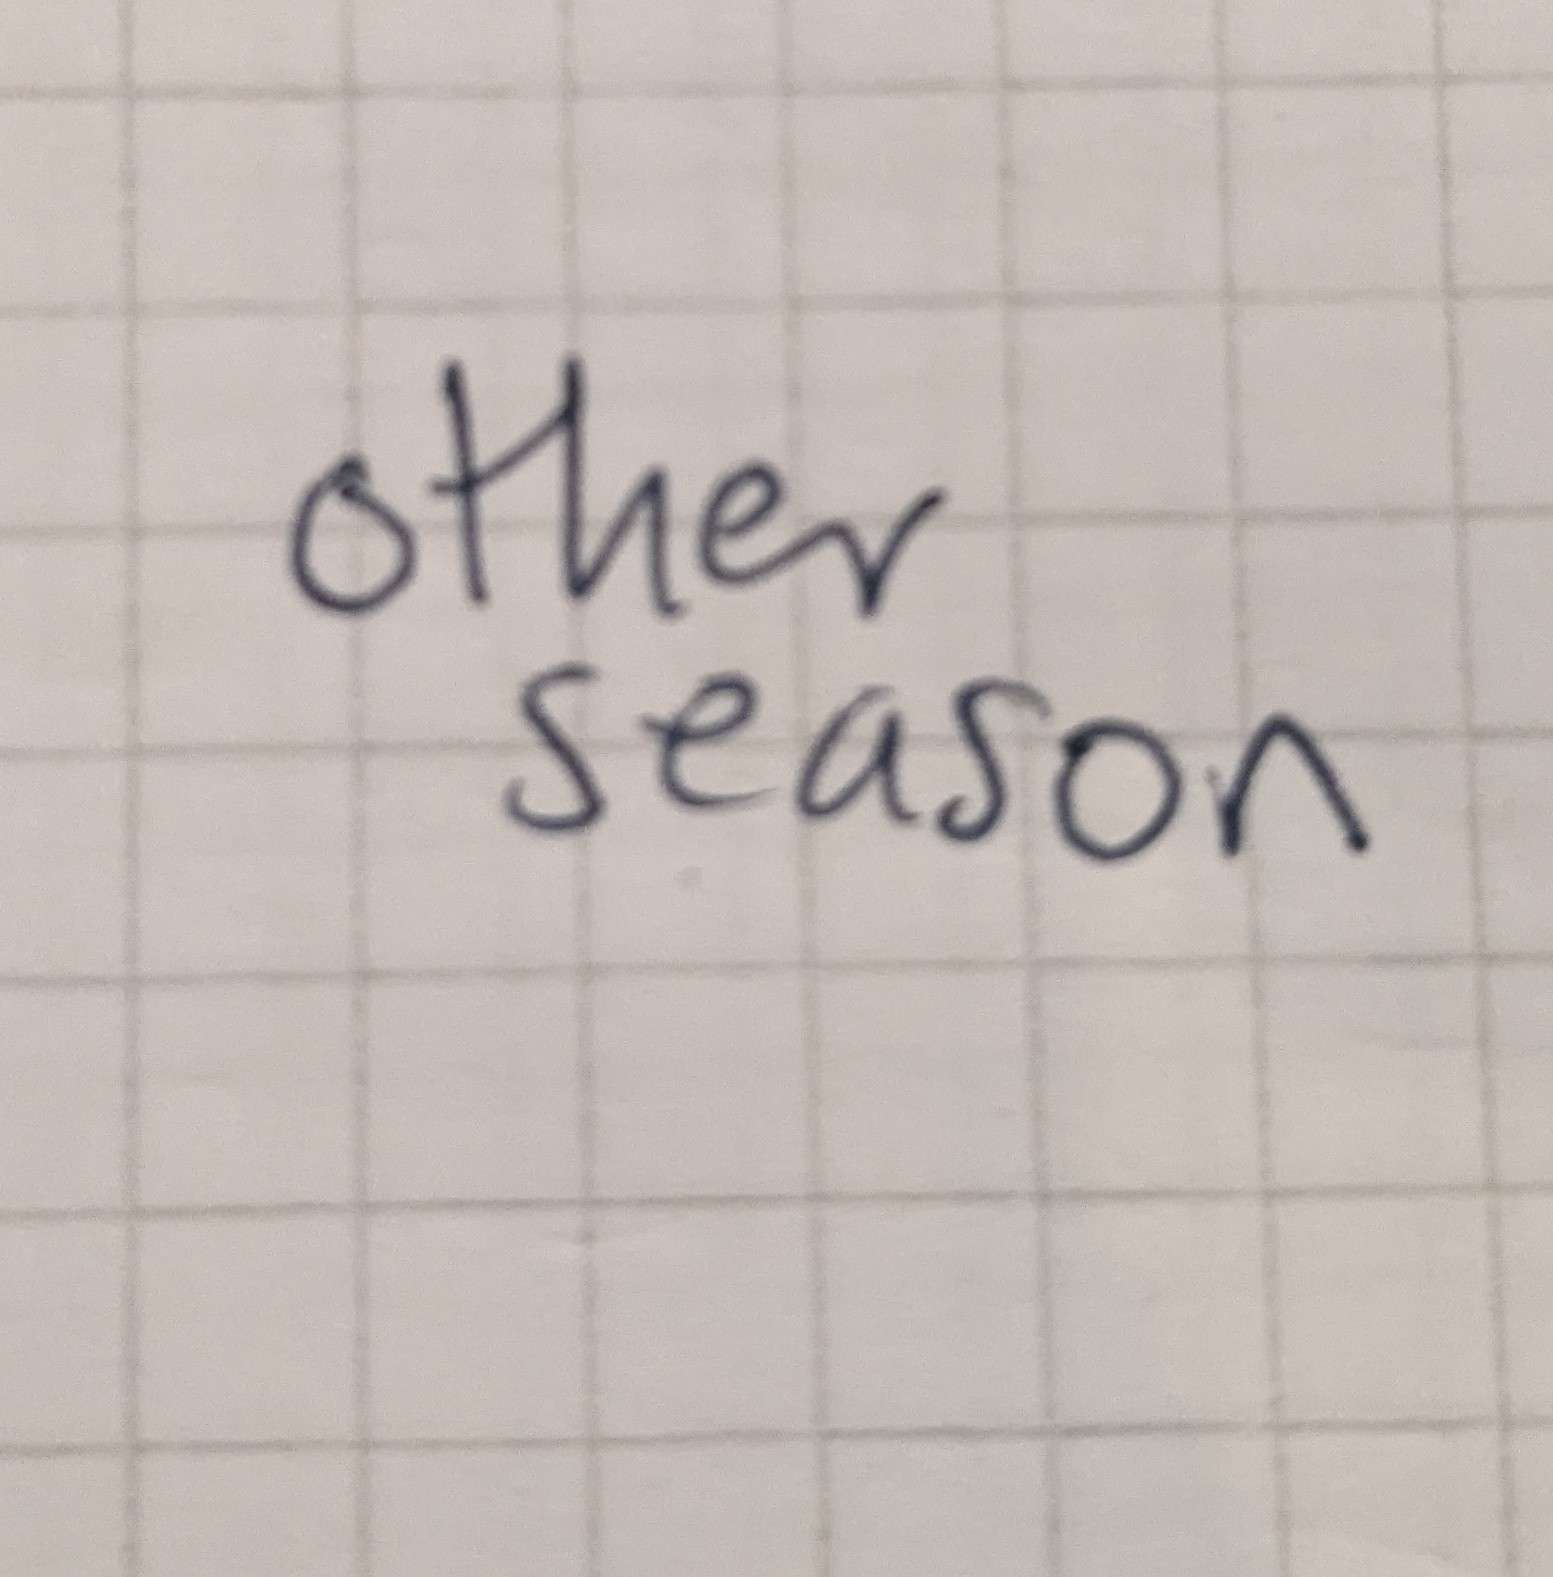 other
season